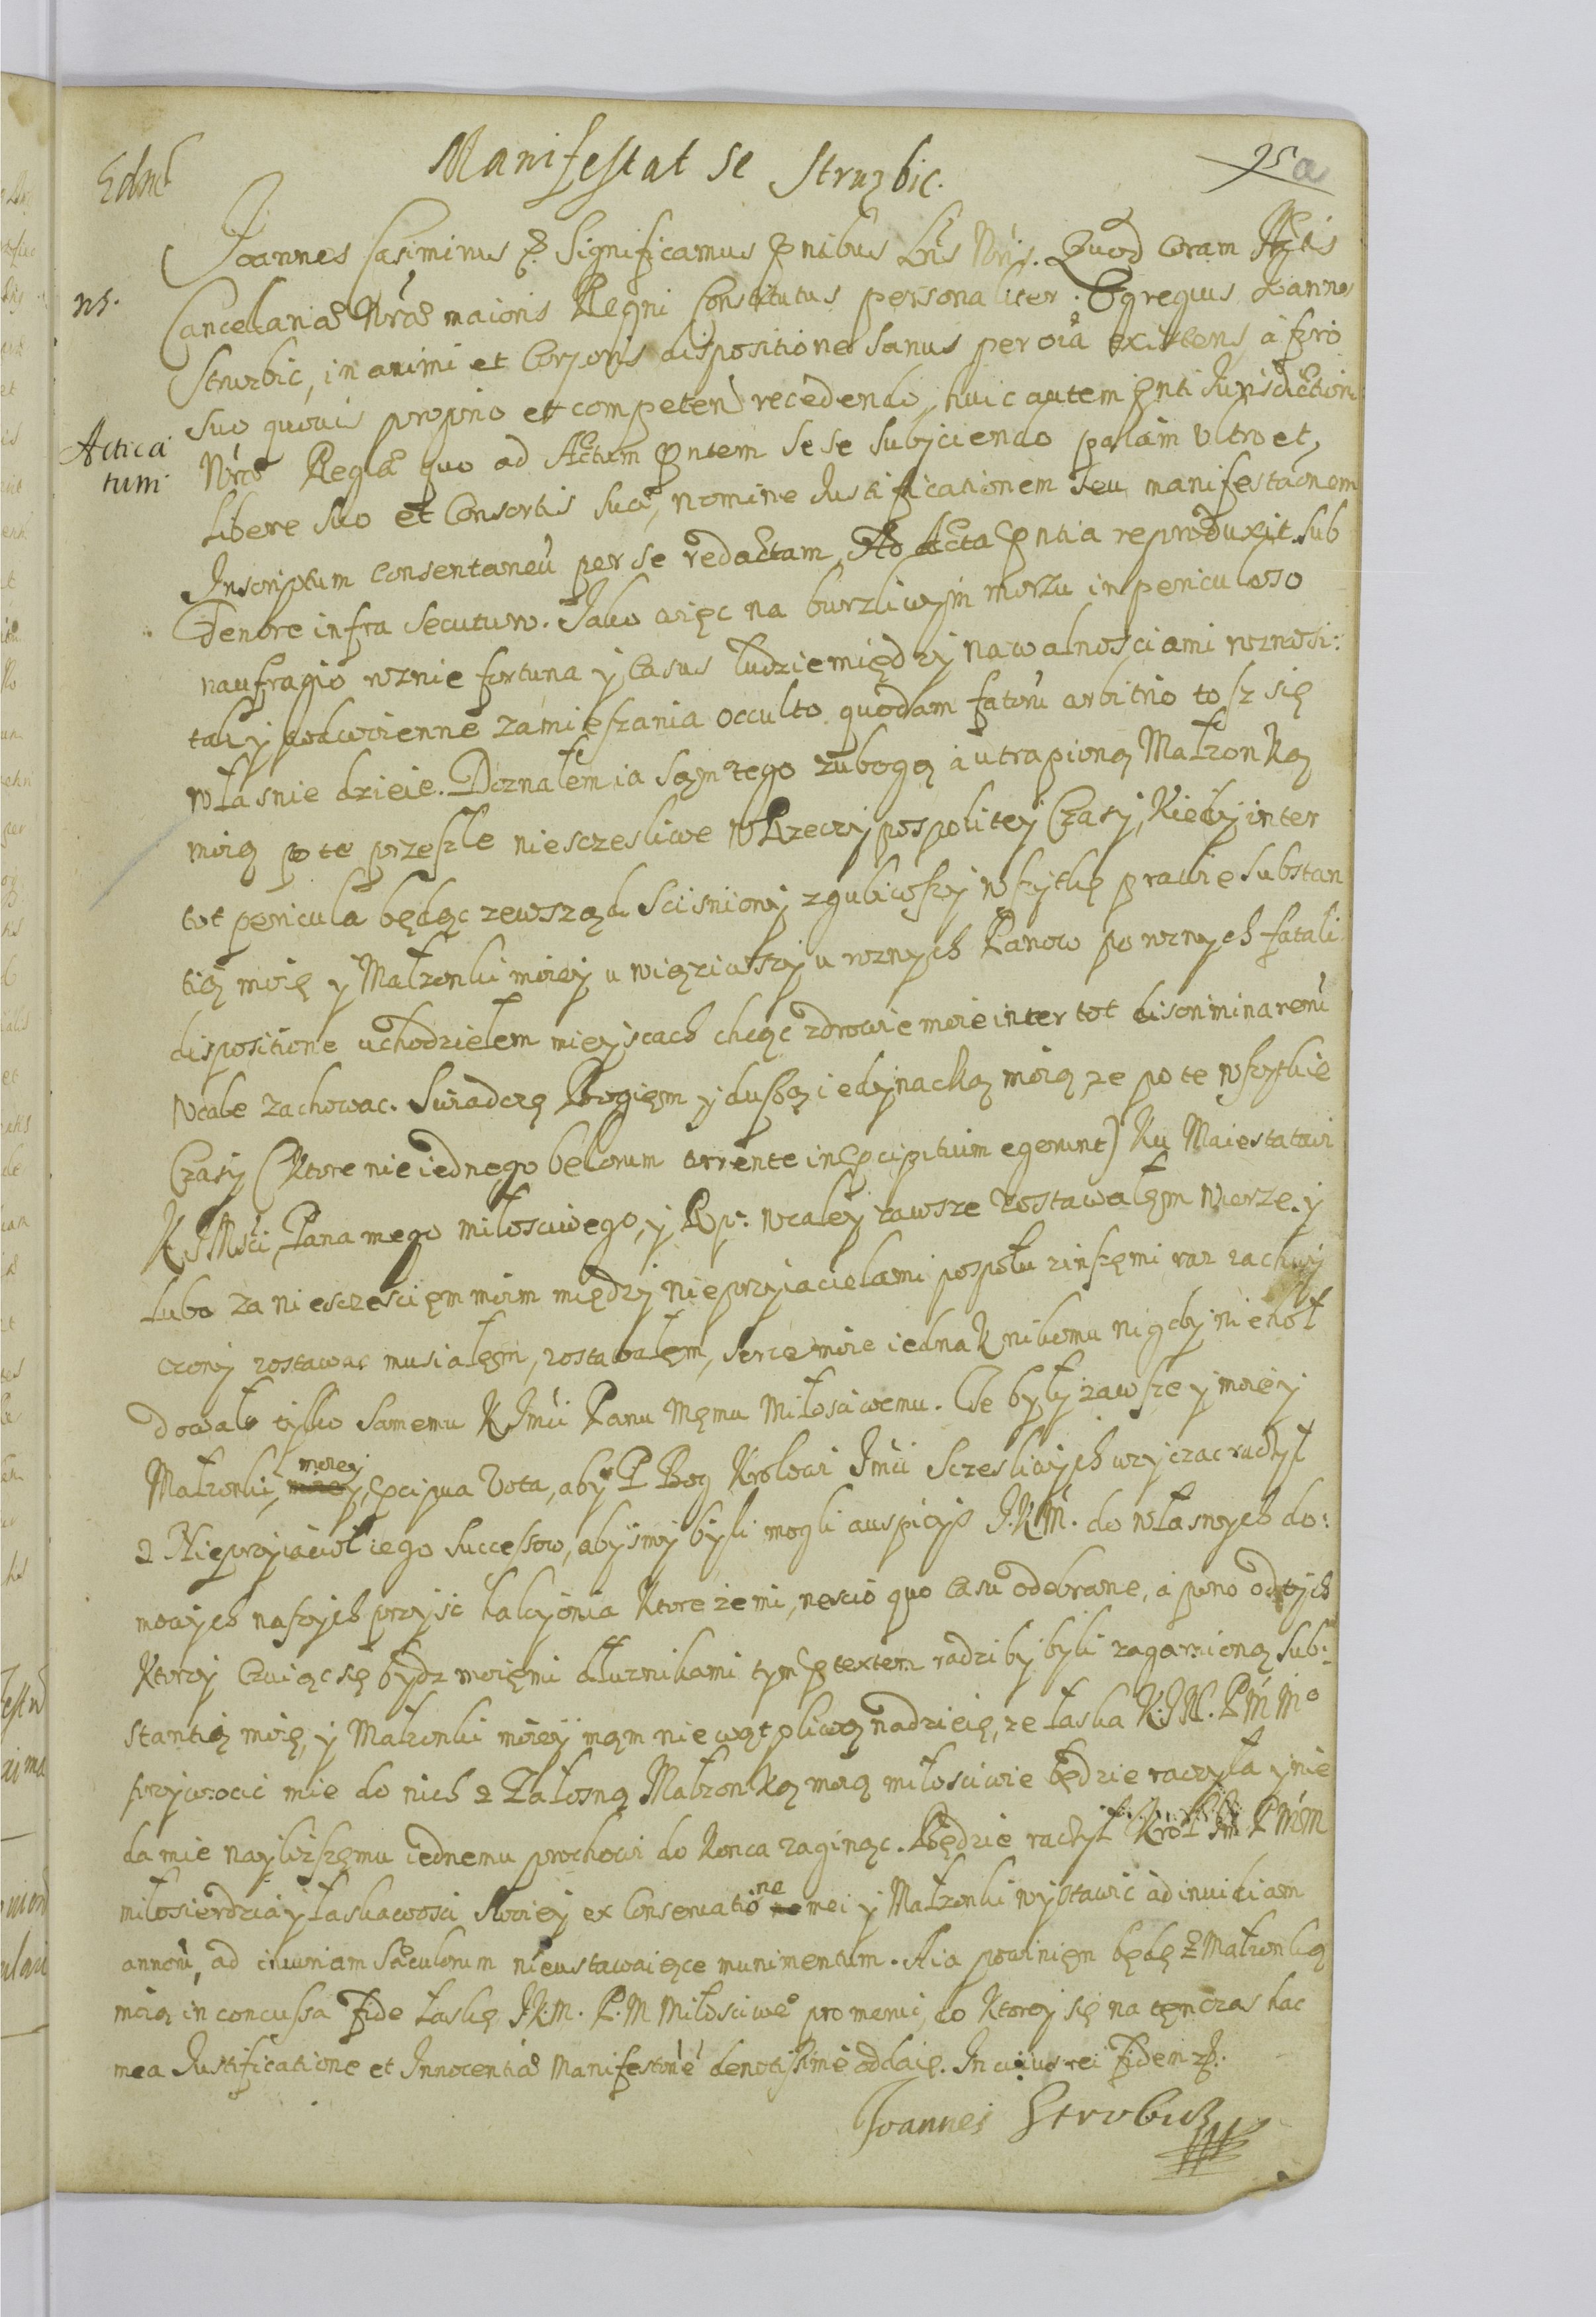 Manifestat se Struzbic.
25 a
Joannes Casimirus &. Significamus pntibus Lris Nris. Quod coram Actis
ns.
Cancelariae Nrae maioris Regni Constitutus personaliter. Egregius Joannes
Struzbic, in animi et Corporis dispositione sanus per oia existens, a foro
suo quouis proprio et competen recedendo, huic autem pnti Jurisdictioni
Actica
tum
Nrae Regiae quo ad Actum pntem se se subyciendo palam vltro et,
libere suo et Consortis suae, nomine Justificationem seu manifestaonem
Inscriptum consentaneu per se redactam, Ad Acta pntia reproduxit. sub
Tenore infra secuturo. Jako więc na burzliwym morzu in periculoso
naufragio roznie fortuna y casus ludzie między nawalnosciami roznosi:
tak y podwoienne zamieszania occulto quodam fatoru arbitrio tosz się
własnie dzieie. Doznałem ia sam tego z ubogą a utrapioną Małzonką
moią po te przeszle niesczesliwe w Rzeczypospolitey Czasy, Kiedy inter
tot pericula będąc zewsząd scisniony zgubiwszy wszytkę prawie substan
tią moię y Małzonki moiey u więziwszy u roznych Panow po roznych fatali
dispositione uchodziełem mieyscach chcąc zdrowie moie inter tot discrimina reru
wcale zachowac. Swiadczę Bogięm y duszą iedynacką moią ze po te wszytkie
Czasy (Ktore nie iednego belorum torrente in pcipitium egerunt) Ku Maiestatowi
K JMsci Pana mego miłosciwego, y Rp. wcaley zawsze zostawałęm wierze. y
lubo za niesczescięm moim między nieprzyiacielami pospołu z inszęmi raz zachwy
czony zostawac musiałęm, zostawałęm, serce moie iednak nikomu nigdy nie hoł
dowało tylko samemu K Jmci Panu Męmu Miłosciwemu. Te były zawsze y moiey
Małzonki, moiey, pcipua Vota, aby P Bog Krolowi Jmci sczesliwych uzyczac raczył
z Nieprzyiacioł iego successow, abysmy byli mogli auspicys J.K.M. do własnych do:
mowych naszych przysc halcyonia Ktore ze mi, nescio quo casu odebrane, a pono od tych
Ktorzy czuiąc się bydz moięmi dłuznikami tym ptextem radzi by byli zagarnieną sub:
stantią moię, y Małzonki moiey mąm niewątpliwą nadzieię, ze łaska K.JM. P M Mo
przywrocic mie do nich z Załosną Małzonką moią miłosciwie będzie raczyła y nie
da mie naynizszęmu iednemu prochowi do konca zaginąc. Będzie raczył Krol Jm P M M
miłosierdzia y łaskawosci swoiey ex Conseruatione mei y Małzonki wystawic ad inuidiam
annoru, ad iniuriam saeculorum nieustawaiące munimentum. A ia powinięn będę z Małzonką
moią inconcussa fide łaskę J.K.M. P. M Miłosciwe promerui, do Ktorey się na tęn czas hac
mea Justificatione et Innocentiae Manifestone deuotissime oddaię. In cuius rei fidem &.
Joannes Strvbicz